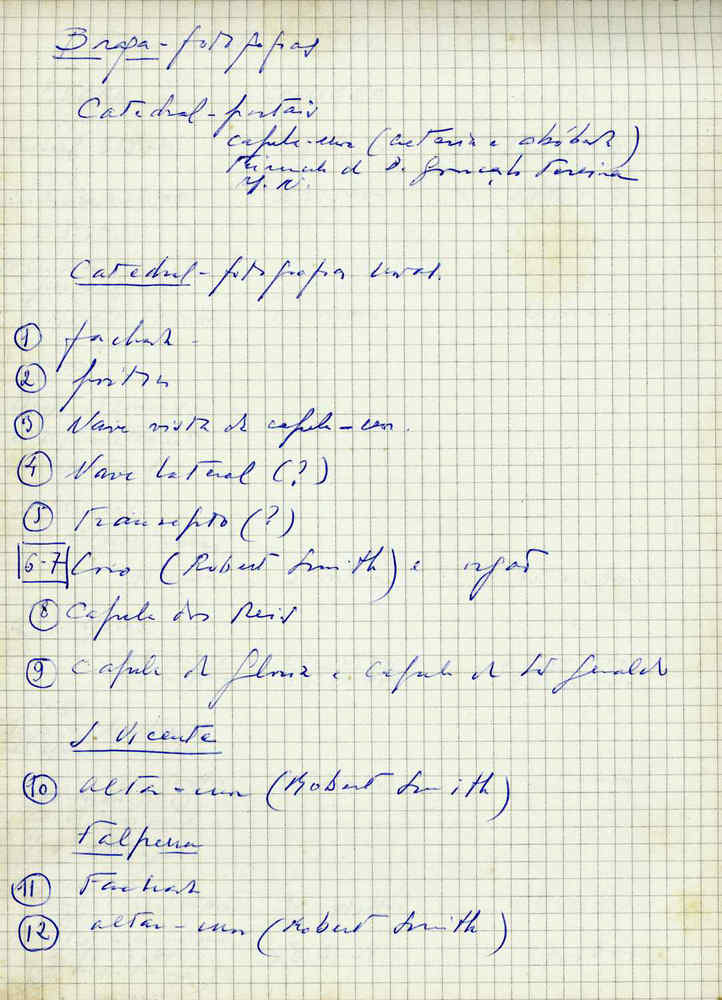 Braga - fotografias
Catedral - portais
capela-mor (exterior e abóbada)
túmulo de D. Gonçalo Pereira
Catedral - fotografias
① fachada -
② portais
③ Nave vista da capela-mor.
④ Nave lateral (?)
⑤ Transepto (?)
6-7 Coro (Robert Smith) e orgão
⑧ Capela dos Reis
⑨ Capela da Gloria e Capela de S. Geraldo
S. Vicente
⑩ altar-mor (Robert Smith)
Falperra
⑪ Fachada
⑫ altar-mor (Robert Smith)